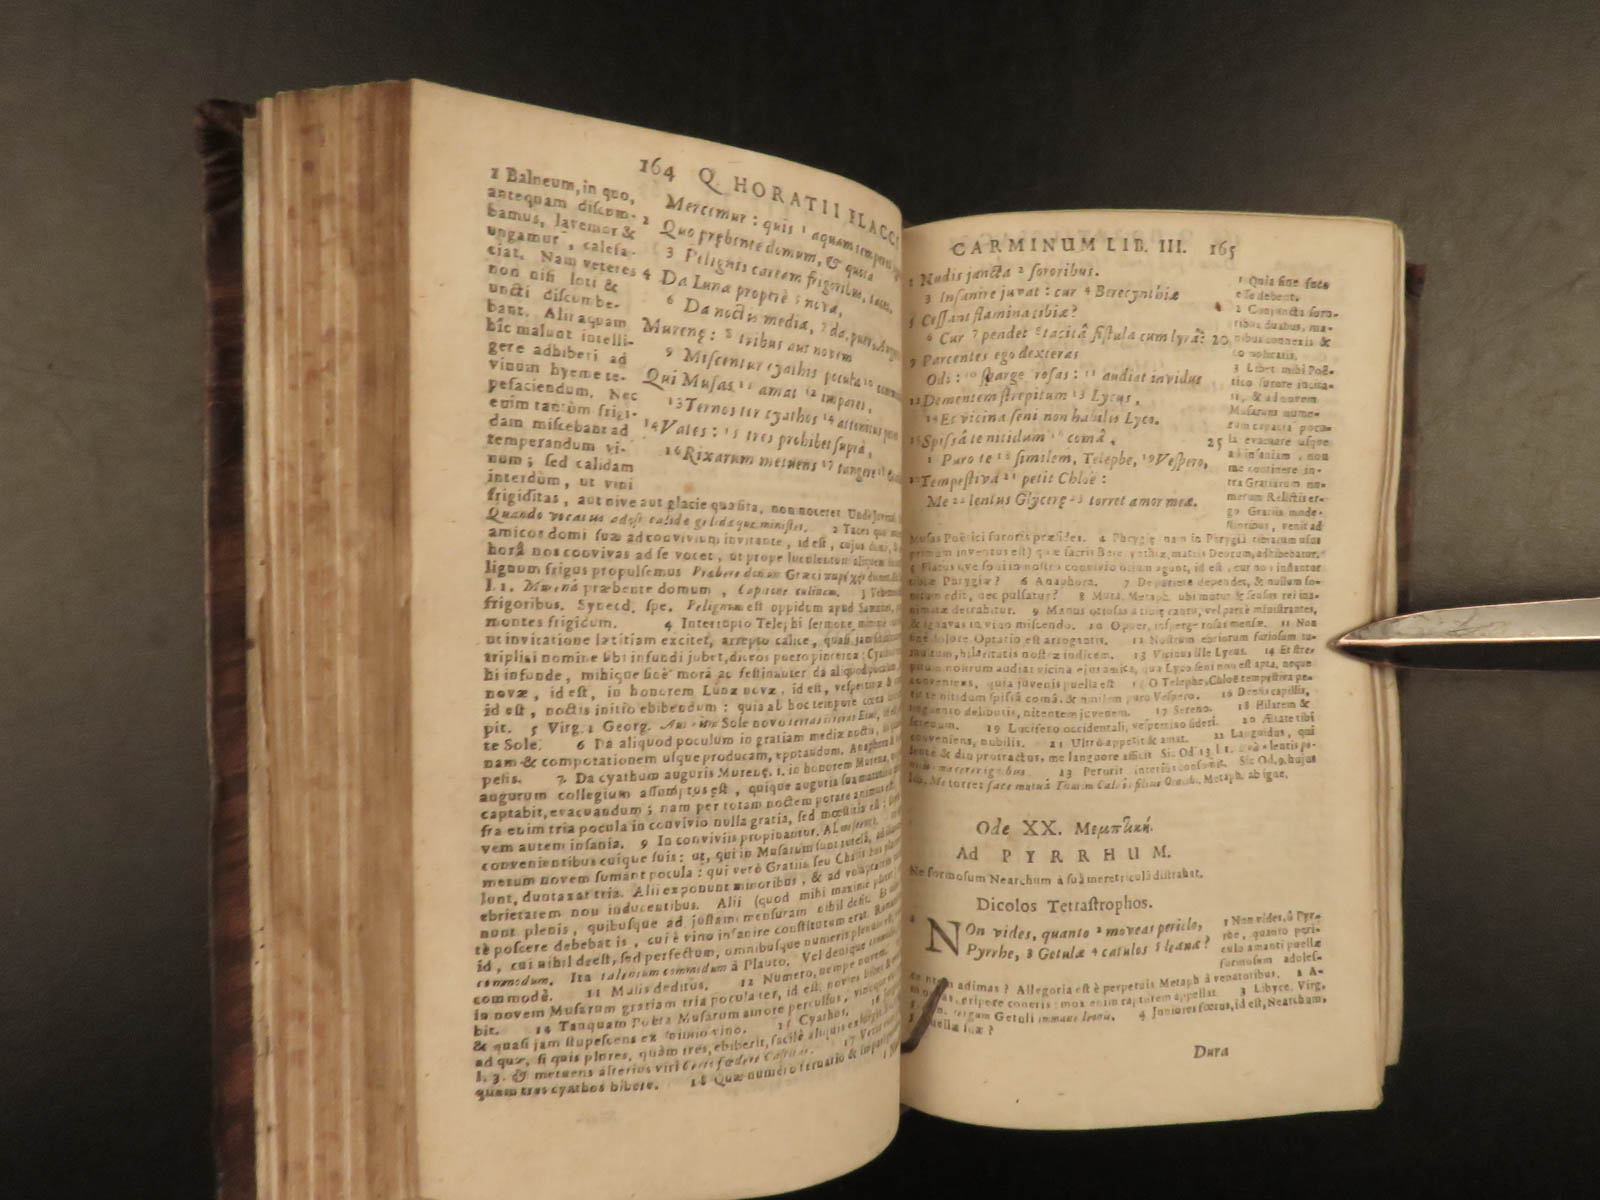 164 Q. HORATII FLACCI
Mercemur : quis 1 aquam temperet
2 Quo præbente domum, & quota
3 Pelignis caream frigoribus, taces,
4 Da Lunæ properè 5 novæ,
6 Da noctis mediæ, 7 da, puer,
Murenæ : 8 tribus aut novem
9 Miscentur cyathis pocula 10
Qui Musas 11 amat 12 impares,
13 Ternos ter cyathos 14 attonitus
Vates : 15 tres prohibet suprà,
16 Rixarum metuens 17 tangere 18
1 Balneum, in quo,
antequam discum-
bamus, lavemur &
ungamur, calefa-
ciat. Nam veteres
non nisi loti &
uncti discumbe-
bant. Alii aquam
hîc malunt intelli-
gere adhiberi ad
vinum hyeme te-
pefaciendum. Nec
enim tantùm frigi-
dam miscebant ad
temperandum vi-
num ; sed calidam
interdum, ut vini
frigiditas, aut nive aut glacie quæsita, non noceret. Unde Juvenal.
Quando vocatus adest calidæ gelidæque minister. 2 Taces quo
amicos domi suæ ad convivium invitante, id est, cujus domi,
horâ nos convivas ad se vocet, ut prope luculentum aliquem
lignum frigus propulsemus Præbere domum Græci
l. 1. Murenâ præbente domum, Capitone culinam. 3
frigoribus. Synecd. spe. Pelignum est oppidum apud
montes frigidum. 4 Interrupto Telephi sermone,
ut invitatione lætitiam excitet, arrepto calice, quasi jam
triplici nomine sibi infundi jubet, dicens puero pincernæ :
hi infunde, mihique sicè morâ ac festinanter da aliquod poculum
novæ, id est, in honorem Lunæ novæ, id est, vespertinæ
id est, noctis initio ebibendum : quia ab hoc tempore
pit. 5 Virg. 1 Georg. Sole novo terras
te Sole. 6 Da aliquod poculum in gratiam mediæ noctis,
nam & compotationem usque producam, epotandum.
pesis. 7 Da cyathum auguris Murenæ, i. in honorem Murenæ,
augurum collegium assumptus est, quique auguria sua
captabit, evacuandum ; nam per totam noctem potare animus est.
fra enim tria pocula in convivio nulla gratia, sed mœstitia est :
vem autem insania. 9 In conviviis propinantur.
convenientibus cuique suis : ut, qui in Musarum sunt tutelâ,
merum novem sumant pocula : qui verò Gratiis seu Charisin
sunt, duntaxat tria. Alii exponunt minoribus, & ad voluptatem
ebrietatem non inducentibus. Alii (quod mihi maximè
nunt plenis, quibusque ad justam mensuram nihil desit.
tè poscere debebat is, cui è vino insanire constitutum erat.
id, cui nihil deest, sed perfectum, omnibusque numeris
commodum. Ita talentum commodum à Plauto. Vel denique
commodè. 11 Musis deditus. 12 Numero, nempe novem.
in novem Musarum gratiam tria pocula ter, id est, novies
bit. 14 Tanquam Poëta Musarum amore percussus,
& quasi jam stupescens ex nimio vino. 15 Cyathos. 16
ad quæ, si quis plures, quàm tres, ebiberit, facilè aliquis
l. 3. & metuens alterius viri Certo fœdere Castitas. 17
quam tres cyathos bibere. 18 Quæ numero ternario & impari
CARMINUM LIB. III. 165
1 Nudis juncta 2 sororibus.
3 Insanire juvat : cur 4 Berecynthiæ
5 Cessant flamina tibiæ ?
6 Cur 7 pendet 8 tacitâ fistula cum lyrâ ? 20
9 Parcentes ego dexteras
Odi : 10 sparge rosas : 11 audiat invidus
12 Dementem strepitum 13 Lycus,
14 Et vicina seni non habilis Lyco.
15 Spissâ te nitidum 16 comâ, 25
1 Puro te 18 similem, Telephe, 19 Vespero,
20 Tempestiva 21 petit Chloë :
Me 22 lentus Glyceræ 23 torret amor meæ.
1 Quia sine fuco
esse debent.
2 Conjuncta soro-
ribus duabus, ma-
nibus connexis &
complicatis.
3 Libet mihi Poë-
tico furore incita-
ri, & ad novem
Musarum nume-
rum capacia pocu-
la evacuare usque
ad insaniam, non
me continere in-
tra Gratiarum nu-
merum Relictis er-
go Gratiis mode-
stioribus, venit ad
Musas Poëtici furoris præsides. 4 Phrygiæ nam in Phrygia tibiarum usus
primum inventus est) quæ sacris Berecynthiæ, matris Deorum, adhibebatur.
5 Flatus sive soni in nostro convivio otium agunt, id est, cur non inflantur
tibiæ Phrygiæ ? 6 Anaphora. 7 De pariete dependet, & nullum so-
nitum edit, nec pulsatur ? 8 Muta. Metaph. ubi motus & sensus rei ina-
nimatæ detrabitur. 9 Manus otiosas à tibiæ cantu, vel parcè ministrantes,
& ignavas in vino miscendo. 10 O puer, insperge rosas mensæ. 11 Non
sine dolore Optatio est arrogantis. 12 Nostrum ebriorum furiosum tu-
multum, hilaritatis nostræ indicem. 13 Vicinus ille Lycus. 14 Et stre-
pitum nostrum audiat vicina ejus amica, quæ Lyco seni non est apta, neque
conveniens, quia juvenis puella est 1 O Telephe, Chloë tempestiva pe-
tit te nitidum spissâ comâ, & similem puro Vespero. 16 Densis capillis,
unguento delibutis, nitentem juvenem. 17 Sereno. 18 Hilarem &
serenum. 19 Lucifero occidentali, vespertino sideri. 20 Ætate tibi
conveniens, nubilis. 21 Ultrò appetit & amat. 22 Languidus, qui
lentè & diu protractus, me languore afficit Sic Od 13. l 1. Quàm lentis pe-
nitus macerer ignibus. 23 Perurit interiùs consumit. Sic Od. 9. hujus
lib. Me torret face mutuâ Thurini Calaïs filius Ornithi. Metaph. ab igne.
Ode XX. Μεμπτική.
Ad PYRRHUM.
Ne formosum Nearchum à suâ meretriculâ distrahat.
Dicolos Tetrastrophos.
1 NOn vides, quanto 2 moveas periclo,
Pyrrhe, 3 Getulæ 4 catulos 5 leænæ ?
1 Non vides, ô Pyr-
rhe, quanto peri-
culo amanti puellæ
formosum adoles-
adimas ? Allegoria est è perpetuis Metaph à venatoribus. 2 A-
moveas, eripere coneris : mox enim raptorem appellat. 3 Libycæ. Virg.
tergum Getuli immane leonis. 4 Juniores fœtus, id est, Nearchum.
5 Puellæ suæ ?
Dura